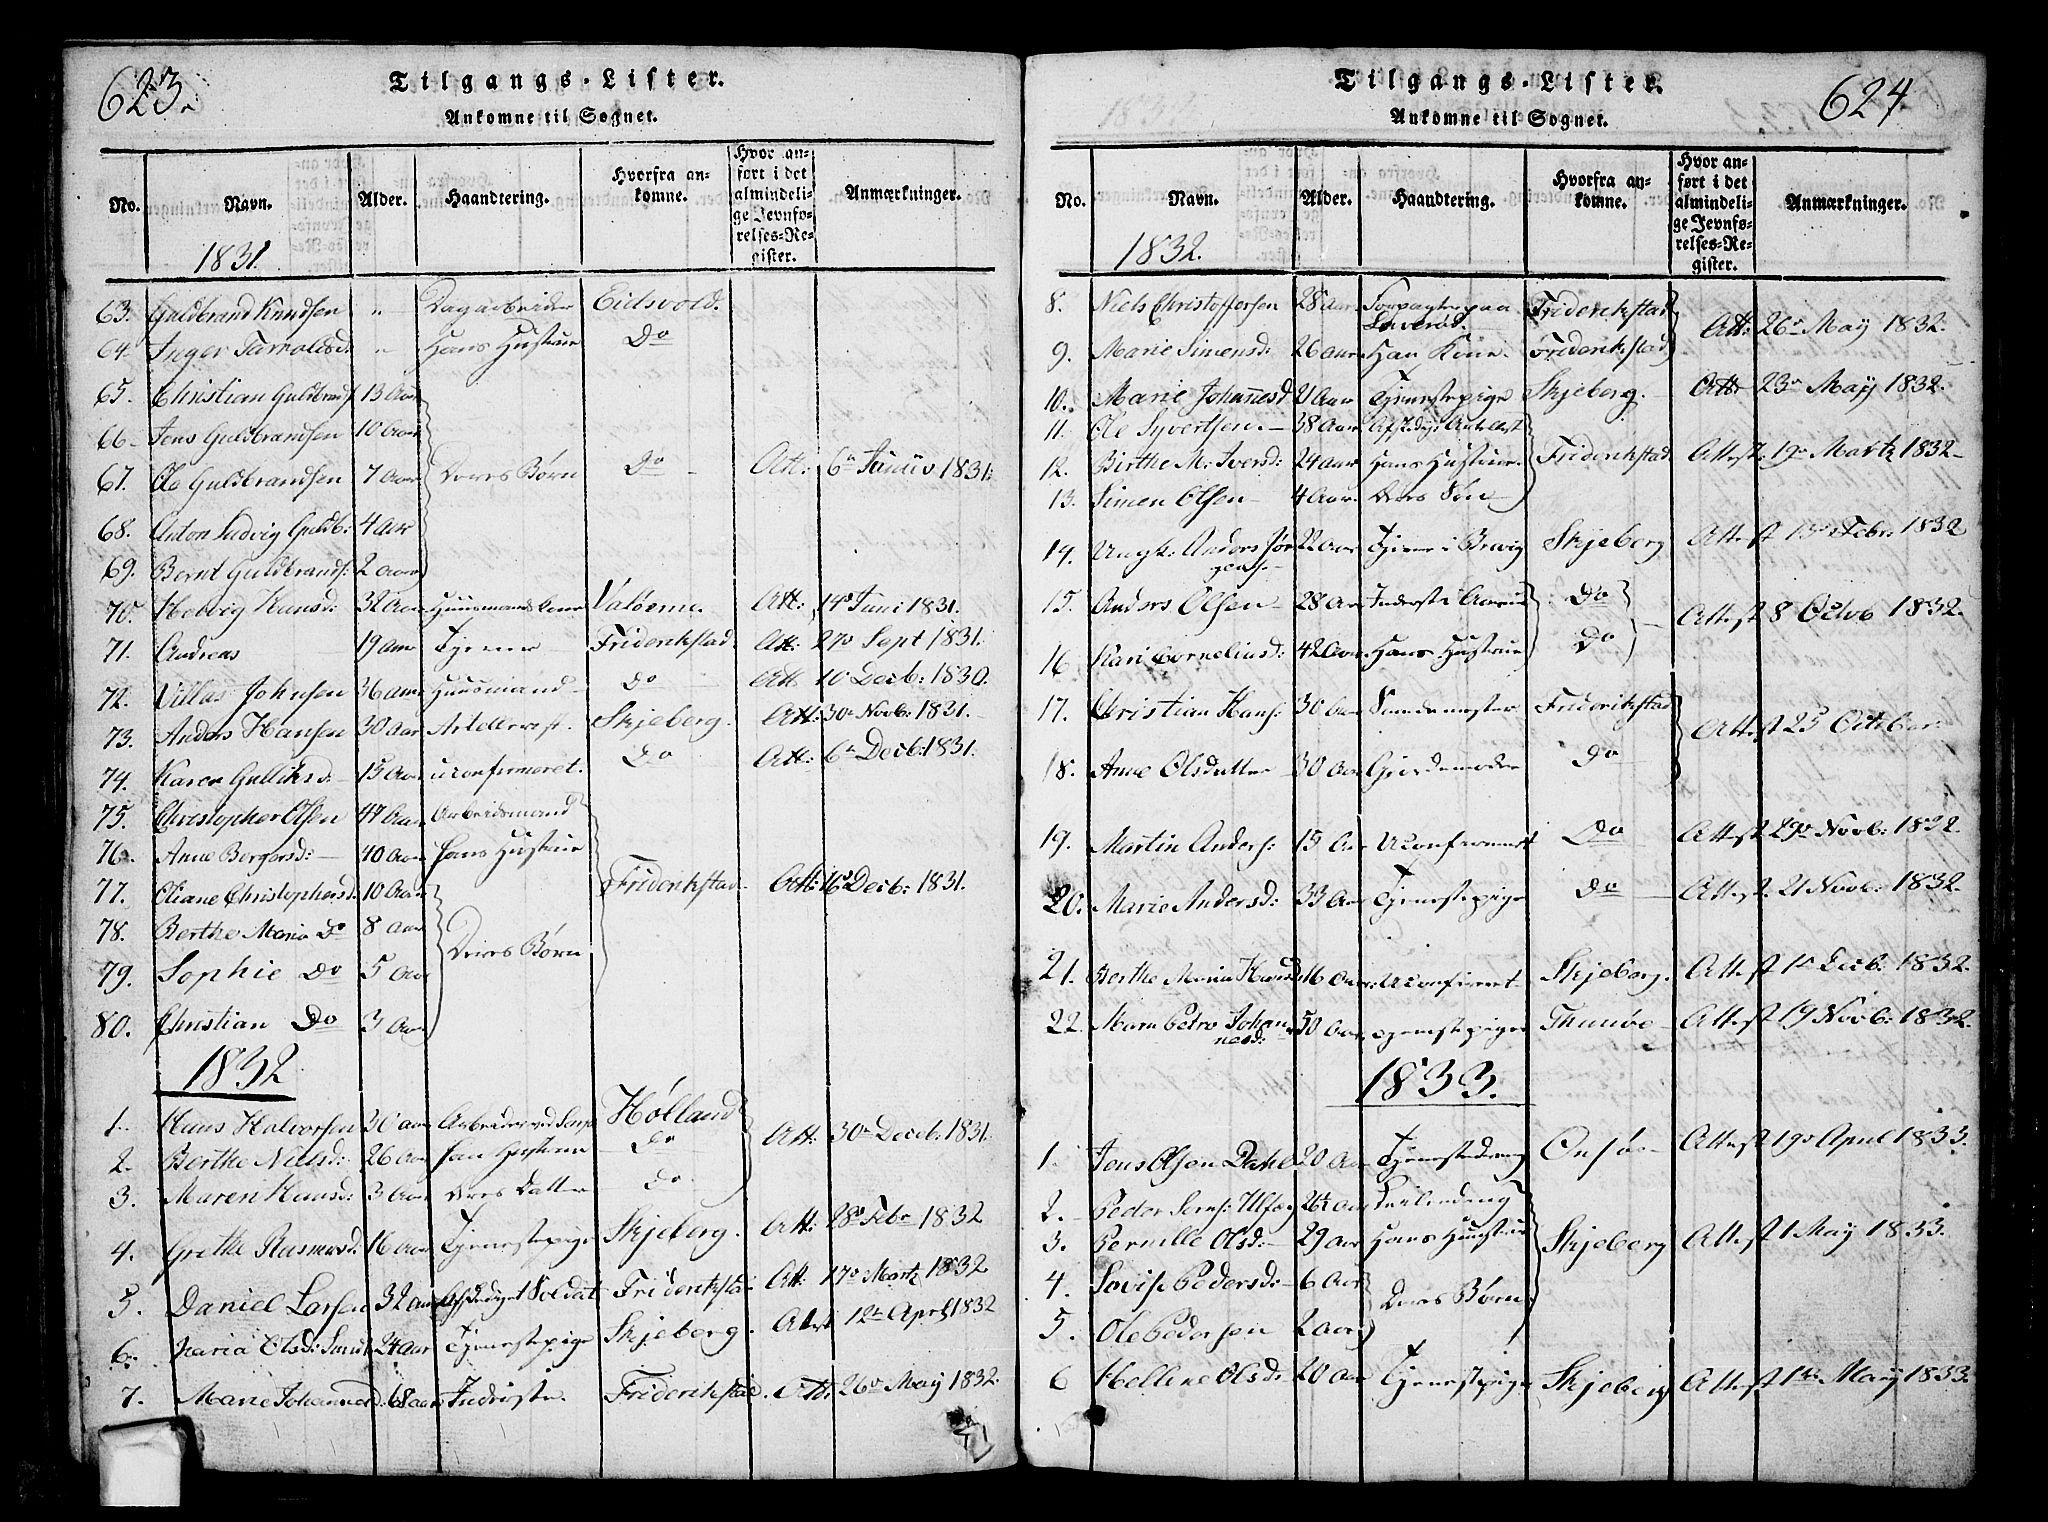 623.
Tilgangs-Lister.
Ankomne til Sognet.
No. Navn. Alder. Haandtering. Hvorfra ankomne. Hvor anført i det almindelige Jevnførelses-Register. Anmærkninger.
1831.
63. Guldbrand Knudsen " Dagarbeider Eidsvold.
64. Inger Tarvaldsd: " Hans Hustrue Do
65. Christian Guldbrands 13 Aar
66. Jens Guldbrandsen 10 Aar
67. Ole Guldbrandsen 7 Aar Deres Børn Do Att: 6te 1831.
68. Anton Ludvig Guldb: 4 Aar
69. Bernt Guldbrands: 2 Aar
70. Helvig Hansd: 32 Aar Huusmands Kone Valøerne. Att: 14de Juni 1831.
71. Andreas 19 Aar Tjener Friderikstad. Att: 27de Sept 1831.
72. Villas Johnsen 36 Aar Huusmand Do Att 10 Decb: 1830.
73. Anders Hansen 30 Aar Artillerist. Skjeberg. Att: 30te Novb: 1831.
74. Karen Gulliksd: 15 Aar uconfirmeret. Do Att: 6te Decb: 1831.
75. Christopher Olsen 47 Aar Arbeidsmand
76. Anne Borgersd: 40 Aar Hans Hustrue
77. Oliane Christophersd. 10 Aar Friderikstad Att: 16de Decb: 1831.
78. Berthe Maria Do 8 Aar Deres Børn
79. Sophie Do 5 Aar
80. Christian Do 3 Aar
1832
1. Hans Halvorsen 30 Aar Arbeider ved Sarp Hølland
2. Berthe Nielsd: 26 Aar Hans Hustrue Do Att: 30te Decb. 1831.
3. Maren Hansd: 3 Aar Deres Datter Do
4. Grethe Rasmusd: 16 Aar Tjenestepige Skjeberg. Att: 28de Febr 1832
5. Daniel Larsen 32 Aar Afskediget Soldat Friderikstad Att: 17de Martz 1832
6. Maria Olsd: 24 Aar Tjenestepige Skjeberg. Attest 12te April 1832
7. Marie Johannesd. 68 Aar Inderste Friderikstad. Att: 26de May 1832.
624
Tilgangs-Lister.
Ankomne til Sognet.
No. Navn. Alder. Haandtering. Hvorfra ankomne. Hvor anført i det almindelige Jevnførelses-Register. Anmærkninger.
1832.
8. Niels Christoffersen 28 Aar Forpagter paa Friderikstad
Att: 26de May 1832.
9. Marie Simensd: 26 Aar Hans Kone. Friderikstad
10. Marie Johannesd 21 Aar Tjenestepige Skjeberg. Att 23de May 1832.
11. Ole Syvertsen 38 Aar Afskedig: Artillerist
12. Birthe M: Iversd: 24 Aar Hans Hustrue Friderikstad Attest. 19de Martz 1832
13. Simen Olsen 4 Aar. Deres Søn
14. Ungk: Anders Jørgens: 22 Aar Tjener i Brevig Skjeberg Attest 13de Febr: 1832
15. Anders Olsen 28 Aar Inderst i Aarum Do
Attest 8 Octob 1832.
16 Kari Corneliusd: 42 Aar. Hans Hustrue Do
17. Christian Hans: 30 Aar Friderikstad
Attest 25 October.
18. Anne Olsdatter 30 Aar Gjordemoder Do
19. Martin Anders: 15 Aar Uconfirmert Do Attest 29de Novb: 1832.
20. Marie Andersd: 33 Aar Tjenestepige Do Attest. 21 Novb: 1832.
21. Berthe Maria Hansd 16 Aar: Uconfirmert Skjeberg. Attest 1te Decb: 1832.
22. Maren Petra Johannesd: 50 Aar. Tjenestepige Thunøe Attest 19 Novb: 1832.
1833.
1. Jens Olsen Dahl 20 Aar Tjenestedreng Onsøe Attest 19de April 1833.
2. Peder 26½ Aar
3. Pernille Olsd: 29 Aar Hans Hustrue Skjeberg Attest 1 May 1833.
4. Lovise Pedersd: 6 Aar Deres Børn
5. Ole Pedersen 2 Aar
6 Hellene Olsd: 20 Aar Tjenestepige Skjeberg Attest 1te May 1833.